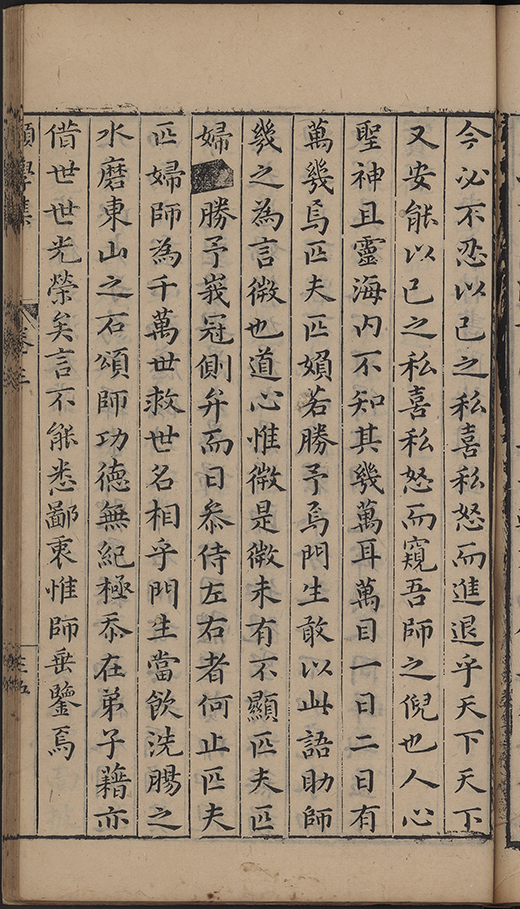 今必不忍以已之私喜私怒而進退乎天下天下
又安能以已之私喜私怒而窺吾師之倪也人心
聖神且靈海内不知其幾萬耳萬目一日二日有
萬幾焉匹夫匹婦若勝予焉門生敢以此語助師
幾之為言微也道心惟微是微未有不顯匹夫匹
婦勝予峩冠側弁而日叅侍左右者何止匹夫
匹婦師為千萬世救世名相乎門生當飲洗腸之
水磨東山之石頌師功德無紀極忝在弟子藉亦
借世世光榮矣言不能悉鄙衷惟師垂鑒焉
學集
卷之